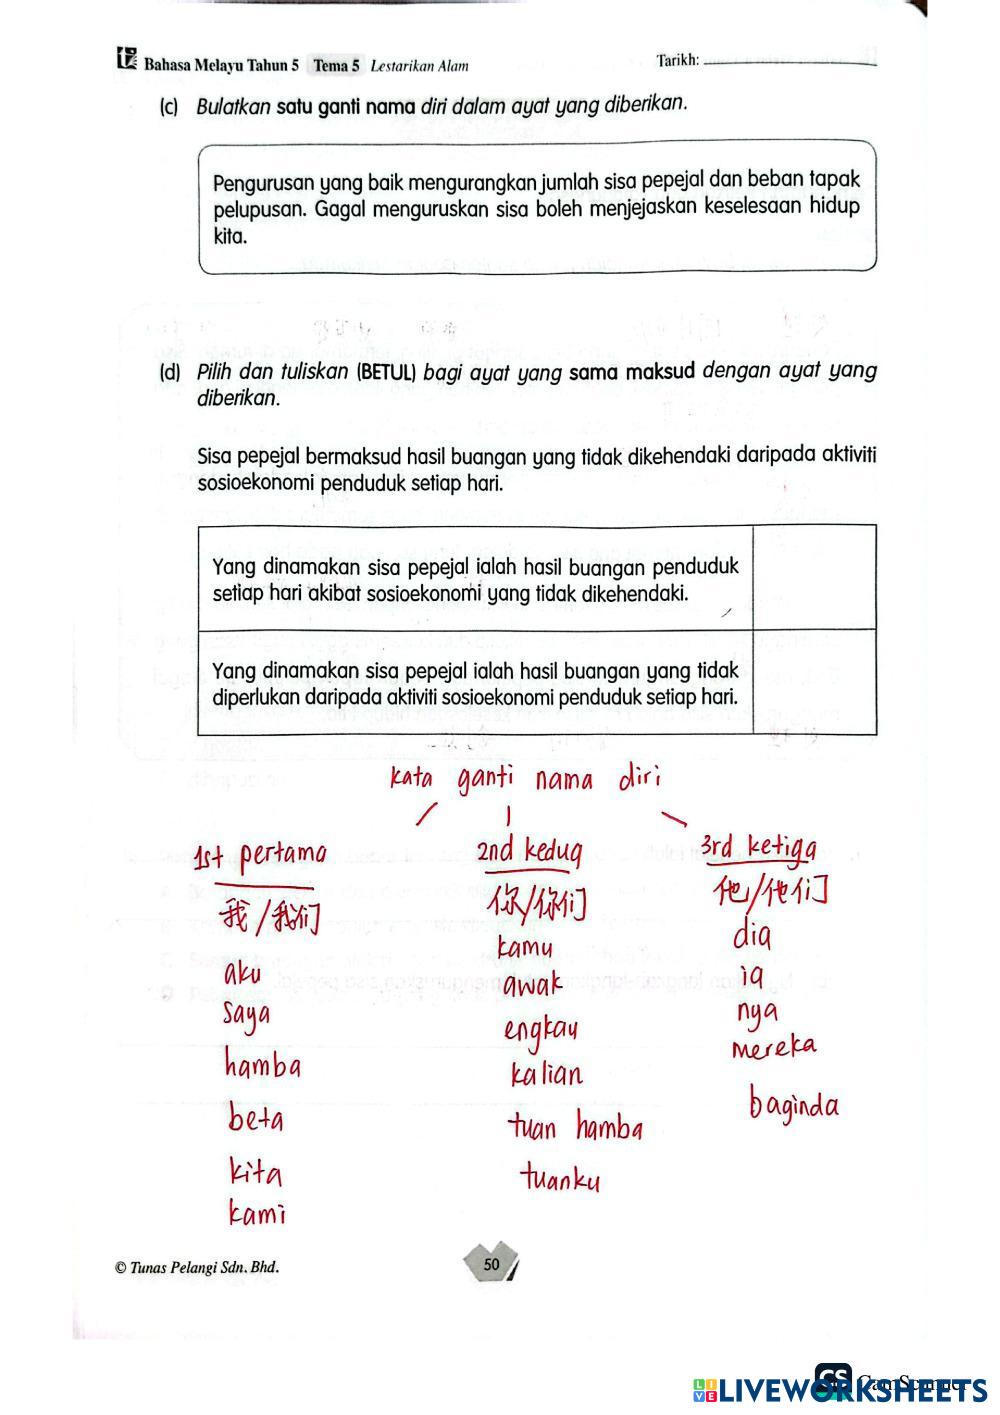 Bahasa Melayu Tahun 5 Tema 5 Lestarikan Alam Tarikh:
(c) Bulatkan satu ganti nama diri dalam ayat yang diberikan.
Pengurusan yang baik mengurangkan jumlah sisa pepejal dan beban tapak
pelupusan. Gagal menguruskan sisa boleh menjejaskan keselesaan hidup
kita.
(d) Pilih dan tuliskan (BETUL) bagi ayat yang sama maksud dengan ayat yang
diberikan.
Sisa pepejal bermaksud hasil buangan yang tidak dikehendaki daripada aktiviti
sosioekonomi penduduk setiap hari.
Yang dinamakan sisa pepejal ialah hasil buangan penduduk
setiap hari akibat sosioekonomi yang tidak dikehendaki.
Yang dinamakan sisa pepejal ialah hasil buangan yang tidak
diperlukan daripada aktiviti sosioekonomi penduduk setiap hari.
kata ganti nama diri
1st pertama
我/我们
aku
saya
hamba
beta
kita
kami
2nd kedua
你/你们
kamu
awak
engkau
kalian
tuan hamba
tuanku
3rd ketiga
他/他们
dia
ia
nya
mereka
baginda
© Tunas Pelangi Sdn. Bhd.
50
CS CamScanner
LIVEWORKSHEETS